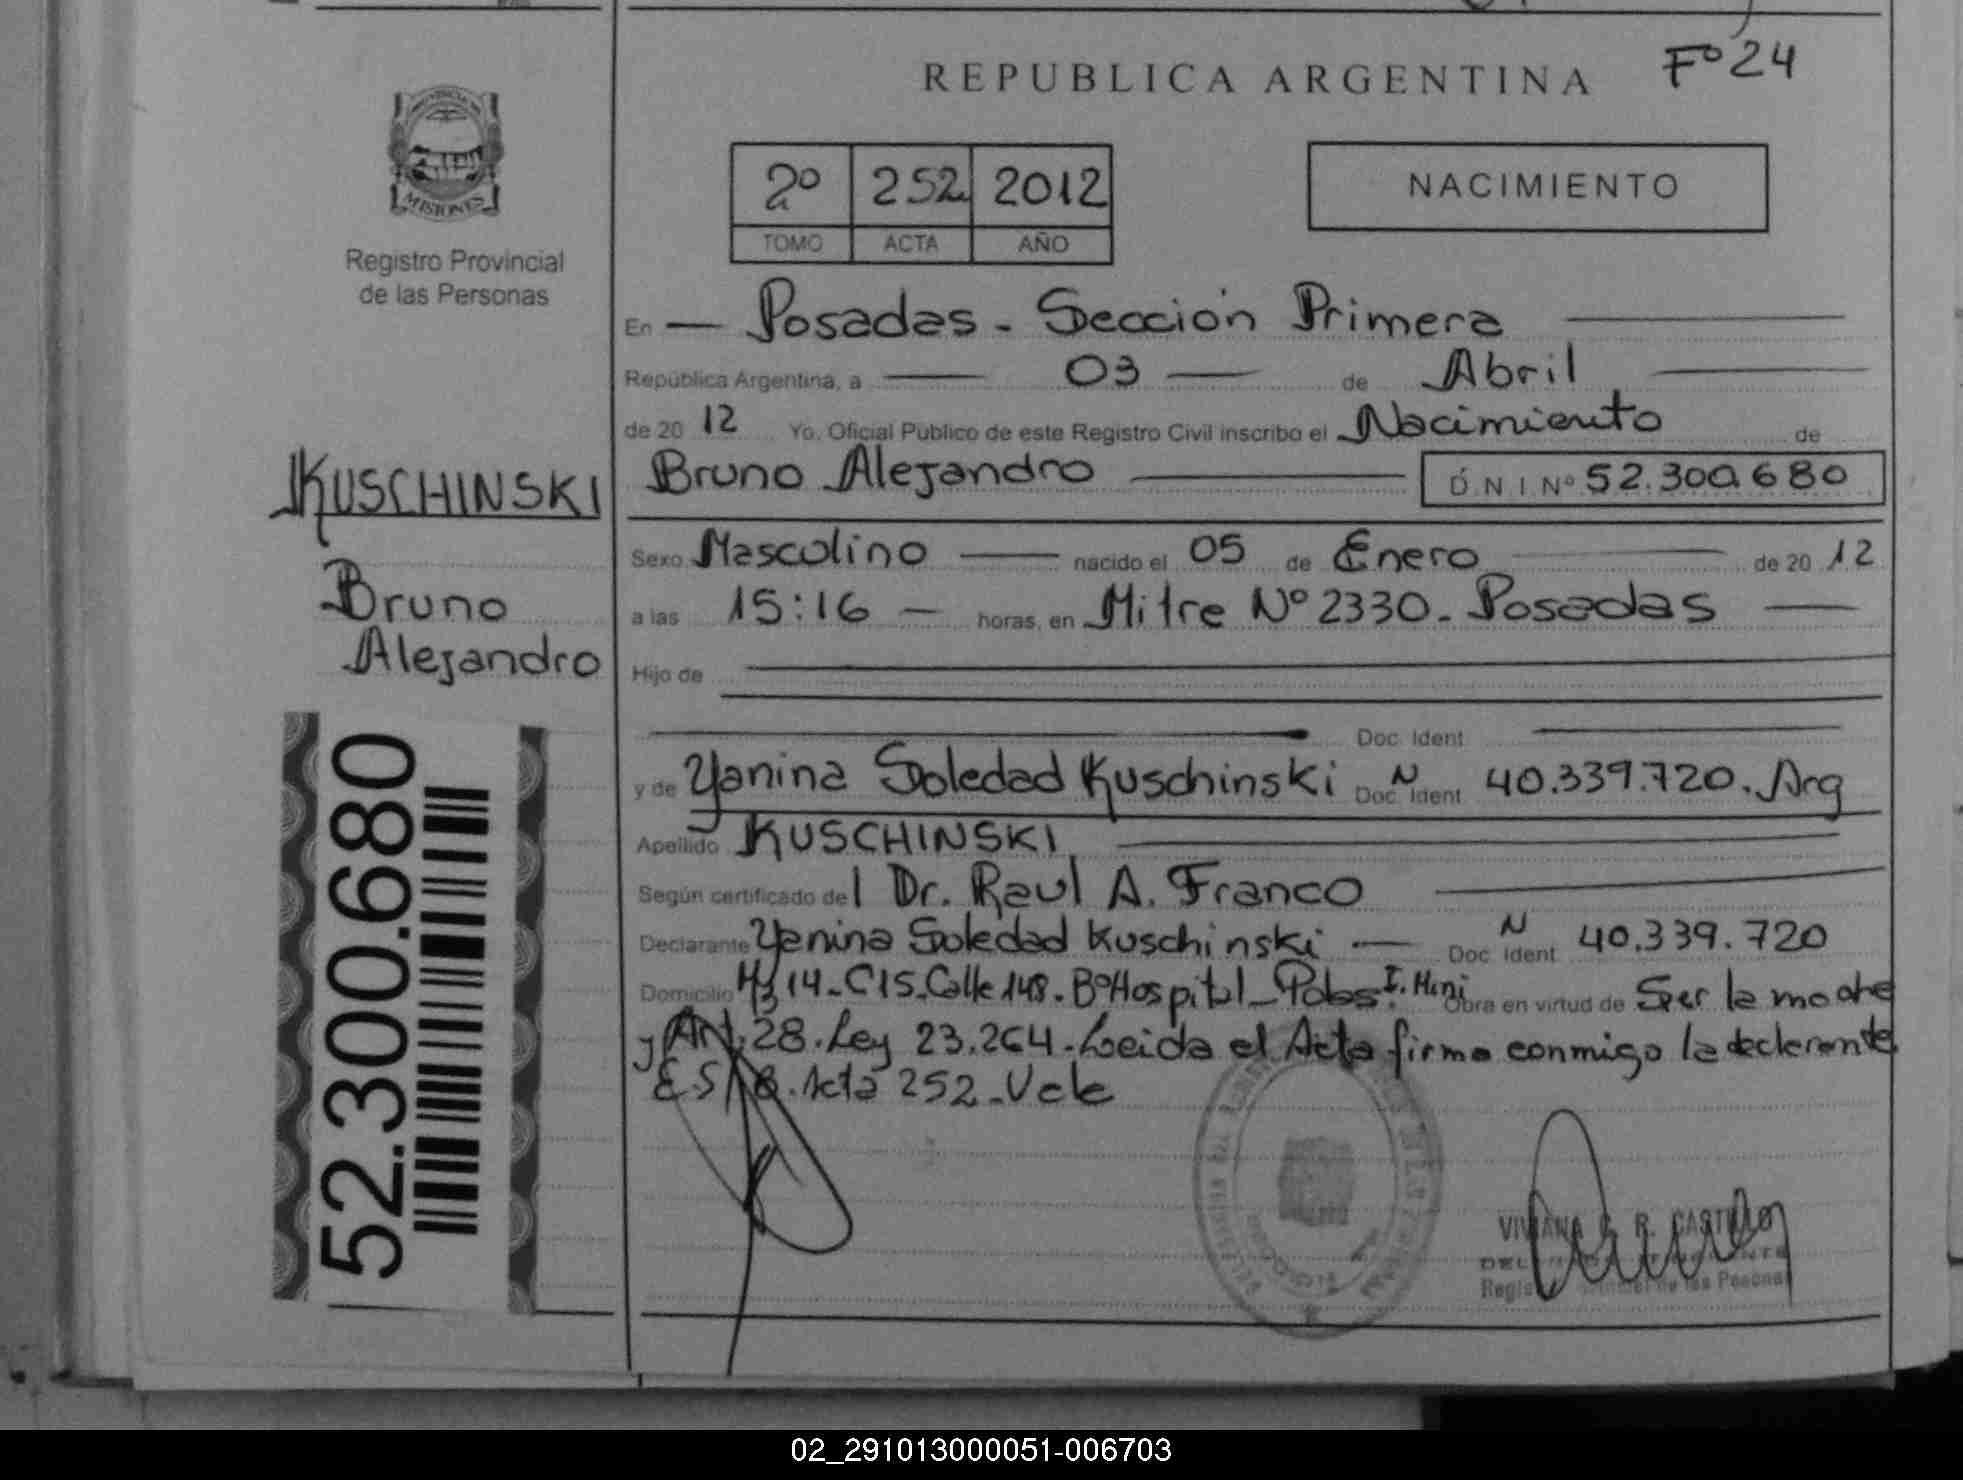 Fº 24
REPUBLICA ARGENTINA
2º 252 2012
TOMO ACTA AÑO
NACIMIENTO
MISIONES
Registro Provincial
de las Personas
En Posadas - Sección Primera
República Argentina, a 03 de Abril
de 20 12 Yo, Oficial Público de este Registro Civil inscribo el Nacimiento de
Bruno Alejandro D.N.I. Nº 52.300.680
KUSCHINSKI
Bruno
Alejandro
52.300.680
Sexo Masculino nacido el 05 de Enero de 20 12
a las 15:16 horas, en Mitre Nº 2330. Posadas
Hijo de
Doc. Ident
y de Yanina Soledad Kuschinski Doc. Ident N 40.339.720. Arg
Apellido KUSCHINSKI
Según certificado del Dr. Raul A. Franco
Declarante Yanina Soledad Kuschinski Doc. Ident N 40.339.720
Domicilio Mz 14 - C15. Calle 148. Bº Hospital - Pdas. Obra en virtud de Ser la madre
y Art. 28. Ley 23.264. Leida el Acta firma conmigo la declarante
E.S/B. Acta 252 - Vale
VIVIANA G. R. CASTILLO
02_291013000051-006703